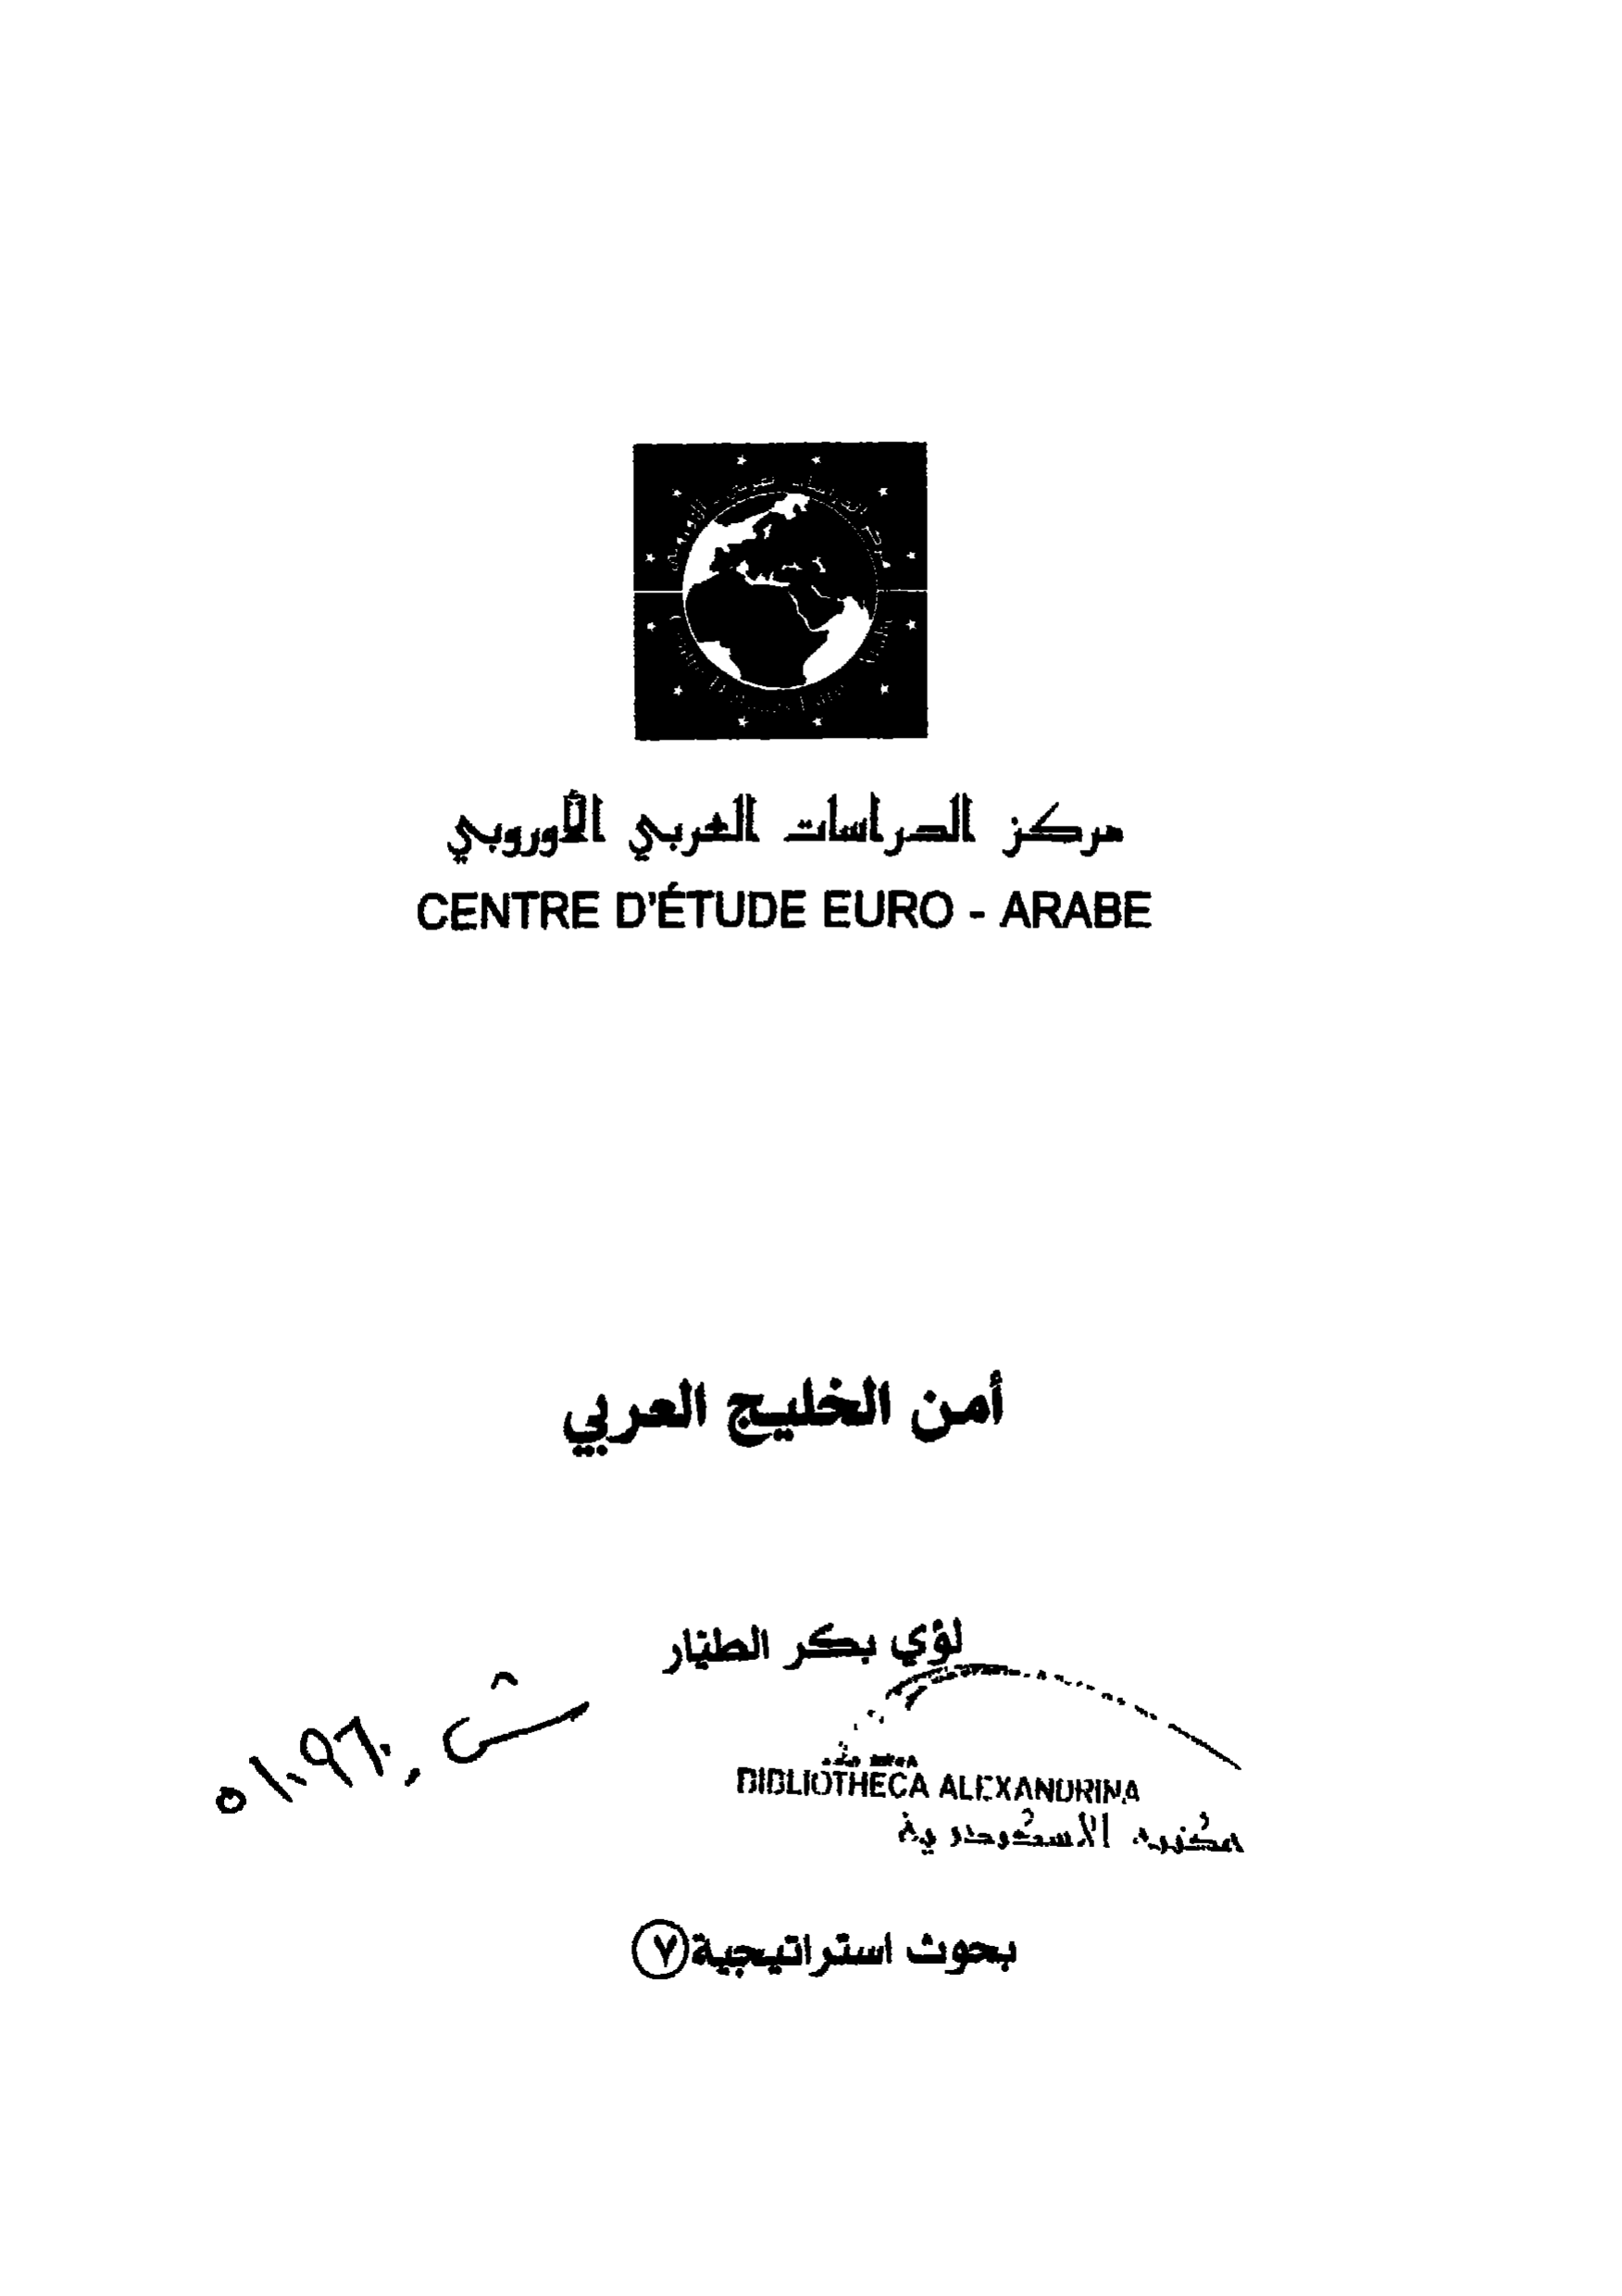 مركز الدراسات العربي الأوروبي
CENTRE D'ÉTUDE EURO - ARABE
أمن الخليج العربي
لؤي بكر الطيّار
BIBLIOTHECA ALEXANDRINA
مكتبة الاسكندرية
بحوث استراتيجية ٧